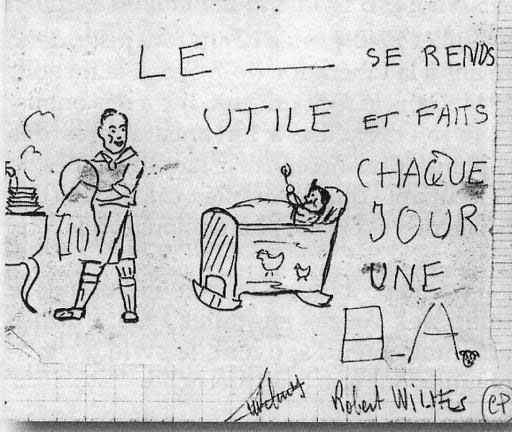 LE ____ SE RENDS
UTILE ET FAITS
CHAQUE
JOUR
UNE
B.A.
Robert
CP